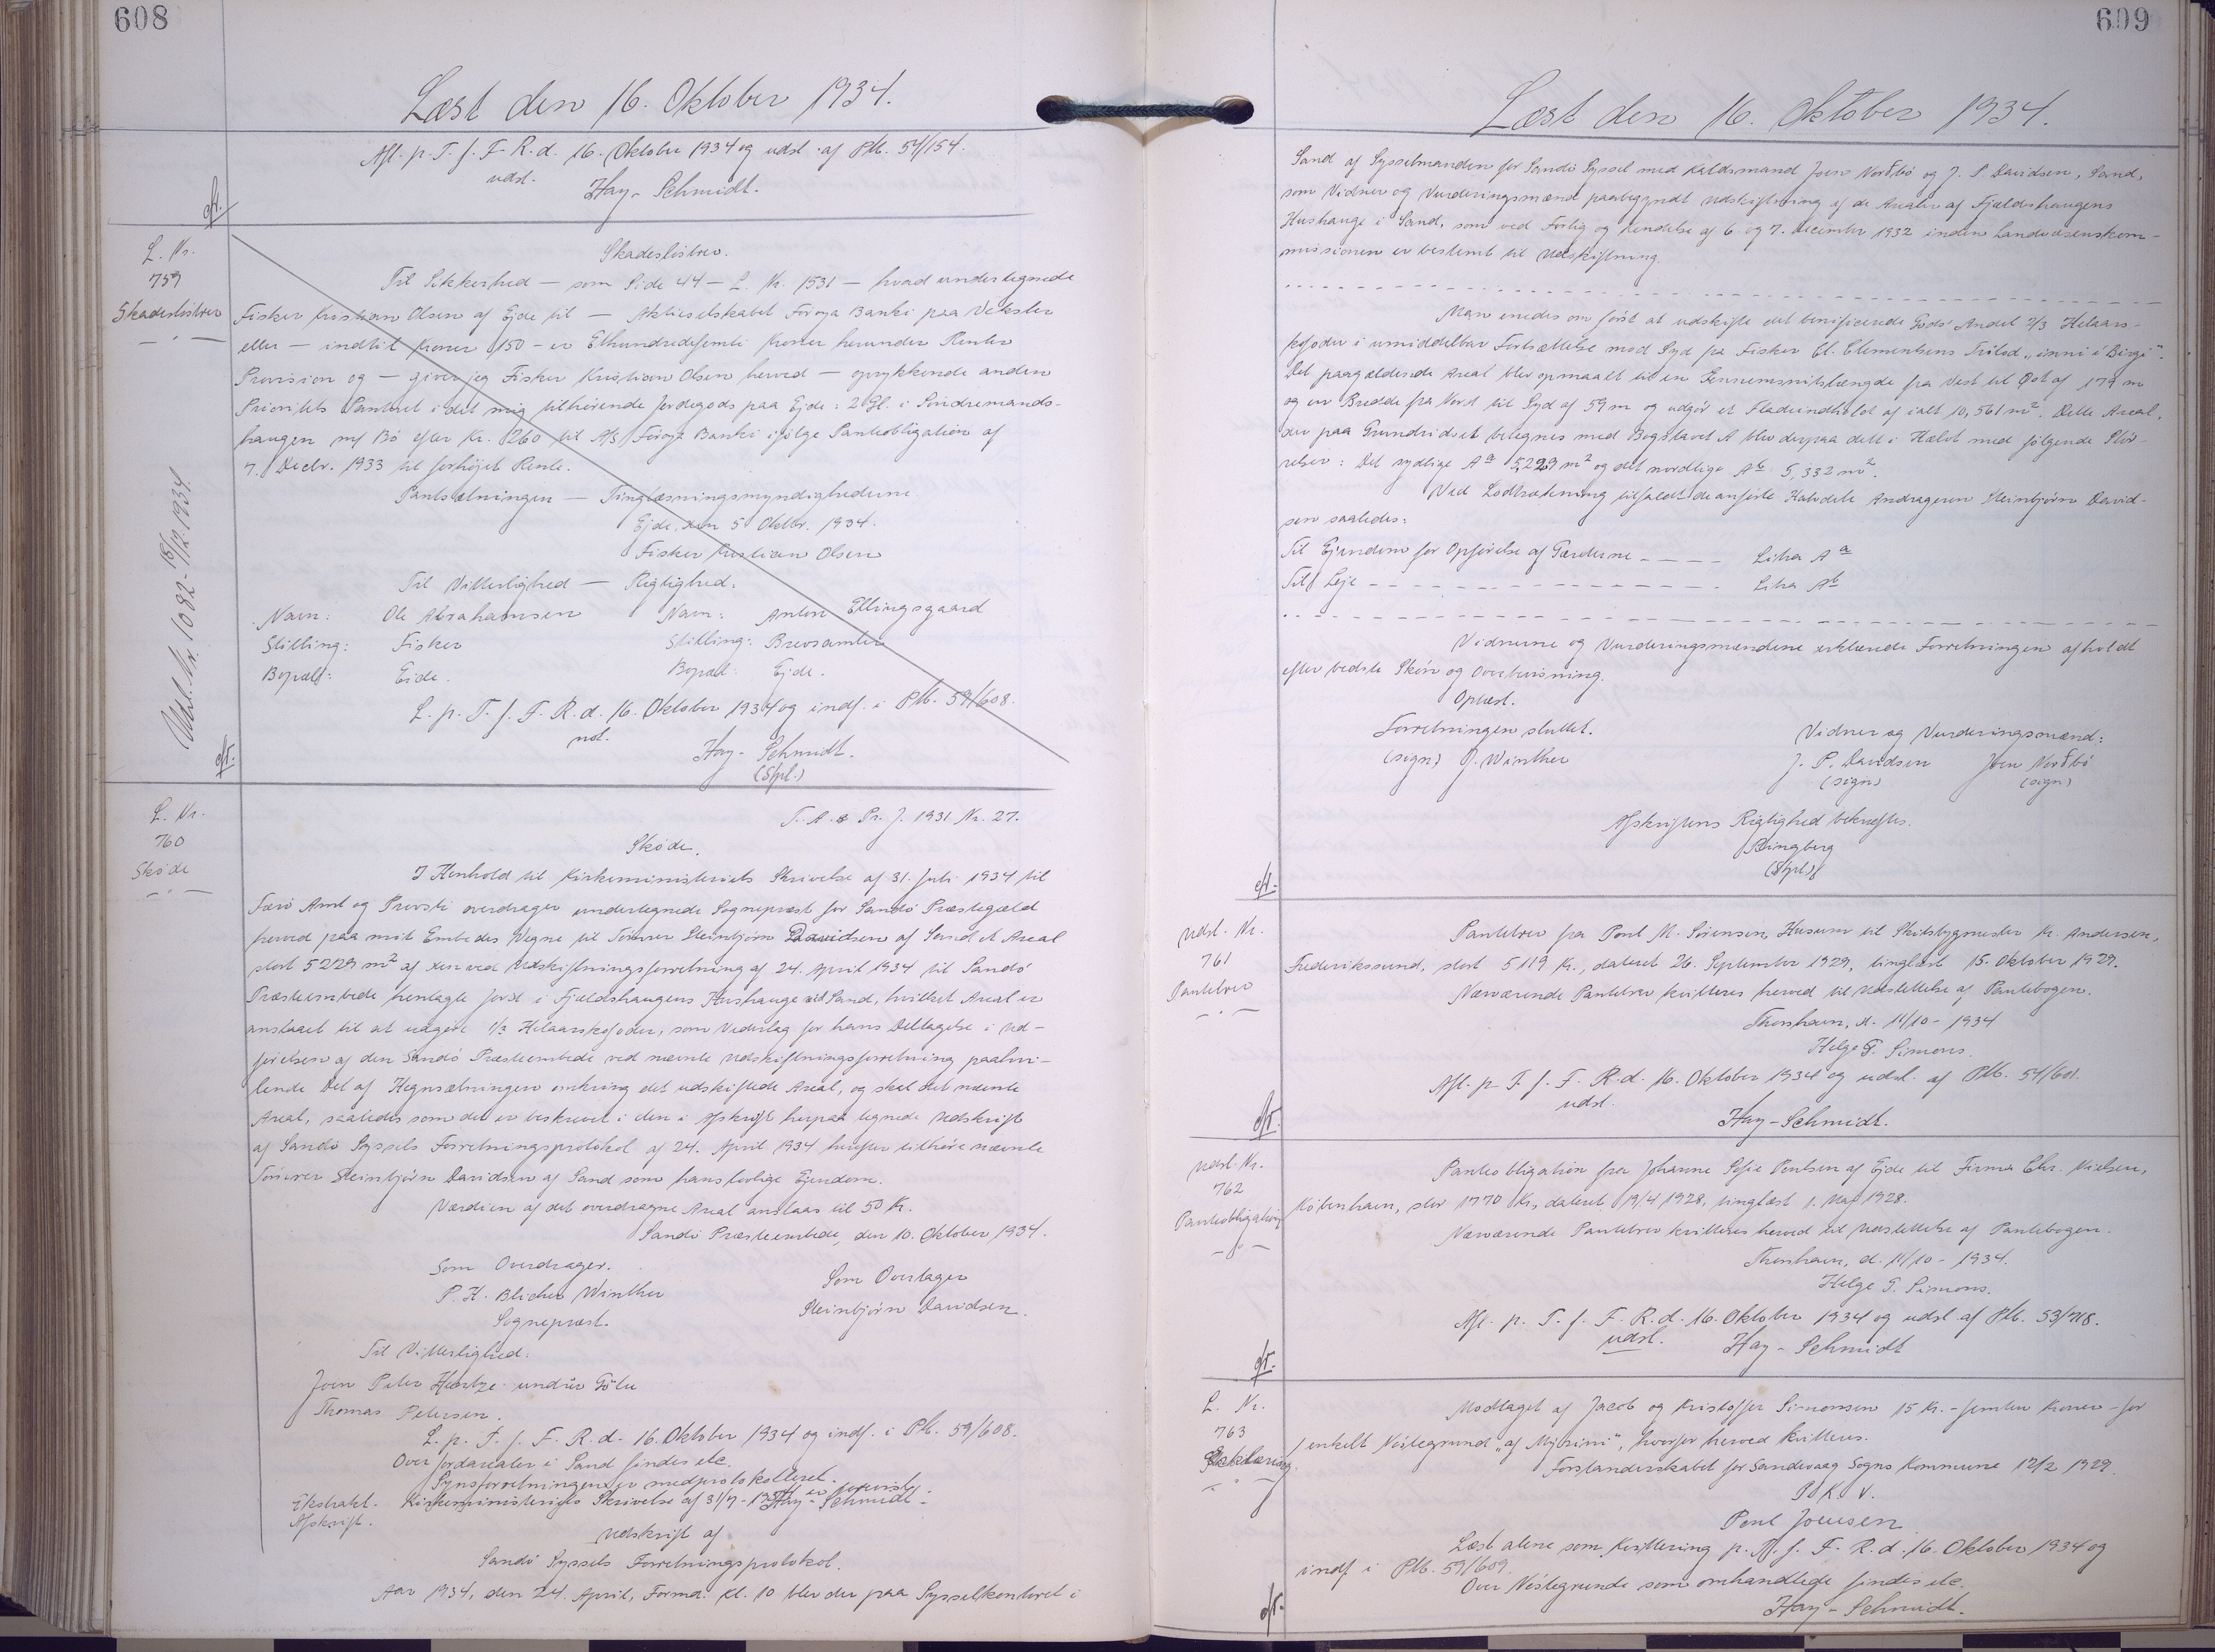 608
Læst den 16. Oktober 1934.
Afl. p. T. f. F. R. d. 16. Oktober 1934 og udsl. af Ptb. 54/154.
udsl.
Hay-Schmidt.
L. Nr.
759
Skadesløsbrev
Udsl. Nr. 1082 - 18/12 1934.
Skadesløsbrev.
Til Sikkerhed — som Side 44 - L. Nr. 1531 — hvad undertegnede
Fisker Kristian Olsen af Ejde til — Aktieselskabet Føroya Banki paa Veksler
eller — indtil Kroner 150 - er Ethundredefemti Kroner herunder Renter
Provision og — giver jeg Fisker Kristian Olsen herved — oprykkende anden
Prioritets Panteret i det mig tilhørende Jordegods paa Ejde: 2 Gl. i Sondremands-
haugen m/ Bö efter Kr. 260 til A/S Føroya Banki ifølge Panteobligation af
7. Decbr. 1933 til forhøjet Rente.
Pantsætningen — Tinglæsningsmyndighederne
Ejde, den 5 Oktbr. 1934.
Fisker Kristian Olsen
Til Vitterlighed — Rigtighed:
Navn: Ole Abrahamsen Navn: Anton Ellingsgaard
Stilling: Fisker Stilling: Brevsamler
Bopæl: Eide. Bopæl: Ejde.
L. p. T. f. F. R. d. 16. Oktober 1934 og indf. i Ptb. 59/608.
not.
Hay-Schmidt.
L. Nr.
760
Skøde
T. A. & Pr. J. 1931 Nr. 27.
Skøde.
I Henhold til Kirkeministeriets Skrivelse af 31. Juli 1934 til
Færø Amt og Provsti overdrager undertegnede Sognepræst for Sandø Præstegæld
herved paa mit Embedes Vegne til Tømrer Steinbjørn Davidsen af Sand et Areal
stort 5229 m² af den ved Udskiftningsforretning af 24. April 1934 til Sandö
Præsteembede henlagte Jord i Fjældshaugens Hushauge ved Sand, hvilket Areal er
anslaaet til at udgøre 1/3 Helaarskofoder, som Vederlag for hans Deltagelse i Ud-
førelsen af den Sandö Præsteembede ved nævnte Udskiftningsforretning paahvi-
lende Del af Hegnsætningen omkring det udskiftede Areal, og skal det nævnte
Areal, saaledes som det er beskrevet i den i Afskrift herpaa tegnede Udskrift
af Sandö Syssels Forretningsprotokol af 24. April 1934 herefter tilhøre nævnte
Tømrer Steinbjörn Davidsen af Sand som hans lovlige Ejendom.
Værdien af det overdragne Areal anslaas til 50 Kr.
Sandö Præsteembede, den 10. Oktober 1934.
Som Overdrager. Som Overtager
P. H. Blicher Winther Steinbjörn Davidsen.
Sognepræst.
Til Vitterlighed:
Joen Peter Hentze undir Gøtu
Thomas Petersen.
L. p. T. f. F. R. d. 16. Oktober 1934 og indf. i Ptb. 59/608.
Over Jordarealer i Sand findes etc.
Synsforretningen er medprotokolleret.
Kirkeministeriets Skrivelse af 31/7 - 1934 er forevist.
Hay-Schmidt.
Ekstrakt.
Afskrift.
Udskrift af
Sandö Syssels Forretningsprotokol.
Aar 1934, den 24. April, Formd. Kl. 10 blev der paa Sysselkontoret i
609
Læst den 16. Oktober 1934.
Sand af Sysselmanden for Sandö Syssel med Kaldsmand Joen Norðbö og J. P. Davidsen, Sand,
som Vidner og Vurderingsmænd paabegyndt Udskiftning af de Arealer af Fjældshaugens
Hushauge i Sand, som ved Forlig og Kendelse af 6. og 7. December 1932 inden Landvæsenskom-
missionen er bestemt til Udskiftning.
Man enedes om först at udskifte det benificerede Gods' Andel 2/3 Helaars-
kofoder i umiddelbar Fortsættelse mod Syd fra Fisker Cl. Clementsens Trölod "inni í Birgi".
Det paagældende Areal blev opmaalt til en Gennemsnitslængde fra Vest til Øst af 179 m
og en Bredde fra Nord til Syd af 59 m og udgör et Fladeindhold af ialt 10,561 m². Dette Areal,
der paa Grundridset betegnes med Bogstavet A blev derpaa delt i Halvt med følgende Stör-
relser: Det sydlige A a 5,229 m² og det nordlige A b 5,332 m².
Ved Lodtrækning tilfaldt de anførte Halvdele Andrageren Steinbjørn David-
sen saaledes:
Til Ejendom for Opførelse af Gærderne - - - - Litra A a
Til Leje - - - - Litra A b
Vidnerne og Vurderingsmændene erklærede Forretningen afholdt
efter bedste Skön og Overbevisning.
Oplæst.
Forretningen sluttet. Vidner og Vurderingsmænd:
(sign) J. Winther J. P. Davidsen Joen Norðbö
(sign) (sign)
Afskriftens Rigtighed bekræftes.
Ringberg
Udsl. Nr.
761
Pantebrev
Pantebrev fra Poul M. Sörensen, Husum til Skibsbygmester K. Andersen,
Frederikssund, stort 5119 Kr., dateret 26. September 1929, tinglæst 15. Oktober 1929.
Nærværende Pantebrev kvitteres herved til Udslettelse af Pantebogen.
Thorshavn, d. 11/10 - 1934
Helge T. Simons.
Afl. p. T. f. F. R. d. 16. Oktober 1934 og udsl. af Ptb. 54/601.
udsl.
Hay-Schmidt.
Udsl. Nr.
762
Panteobligation
Panteobligation fra Johanne Sofie Poulsen af Ejde til Firma Chr. Nielsen,
København, stor 1770 Kr., dateret 19/4 1928, tinglæst 1. Maj 1928.
Nærværende Pantebrev kvitteres herved til Udslettelse af Pantebogen.
Thorshavn, d. 11/10 - 1934.
Helge T. Simons.
Afl. p. T. f. F. R. d. 16. Oktober 1934 og udsl. af Ptb. 53/718.
udsl.
Hay-Schmidt
L. Nr.
763
Modtaget af Jacob og Kristoffer Simonsen 15 Kr. - femten Kroner - for
1 enkelt Nöstegrund "af Mýrini", hvorfor herved kvitteres.
Forstanderskabet for Sandevaag Sogns Kommune 12/2 1929.
P. K. V.
Poul Joensen
Læst alene som Kvittering p. T. f. F. R. d. 16. Oktober 1934 og
indf i Ptb. 59/609.
Over Nöstegrunde som omhandlede findes etc.
Hay-Schmidt.